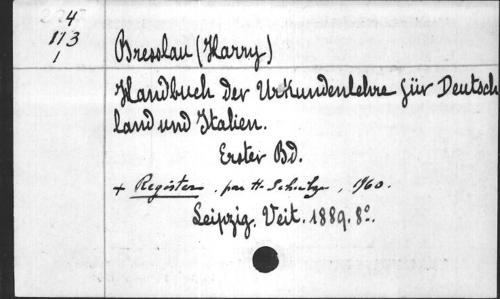 4
113
1
Bresslau (Harry)
Handbuch der Urkundenlehre für Deutsch
land und Italien.
Erster Bd.
+ Register, par H. Schulze, 1960.
Leipzig. Veit. 1889. 8º.